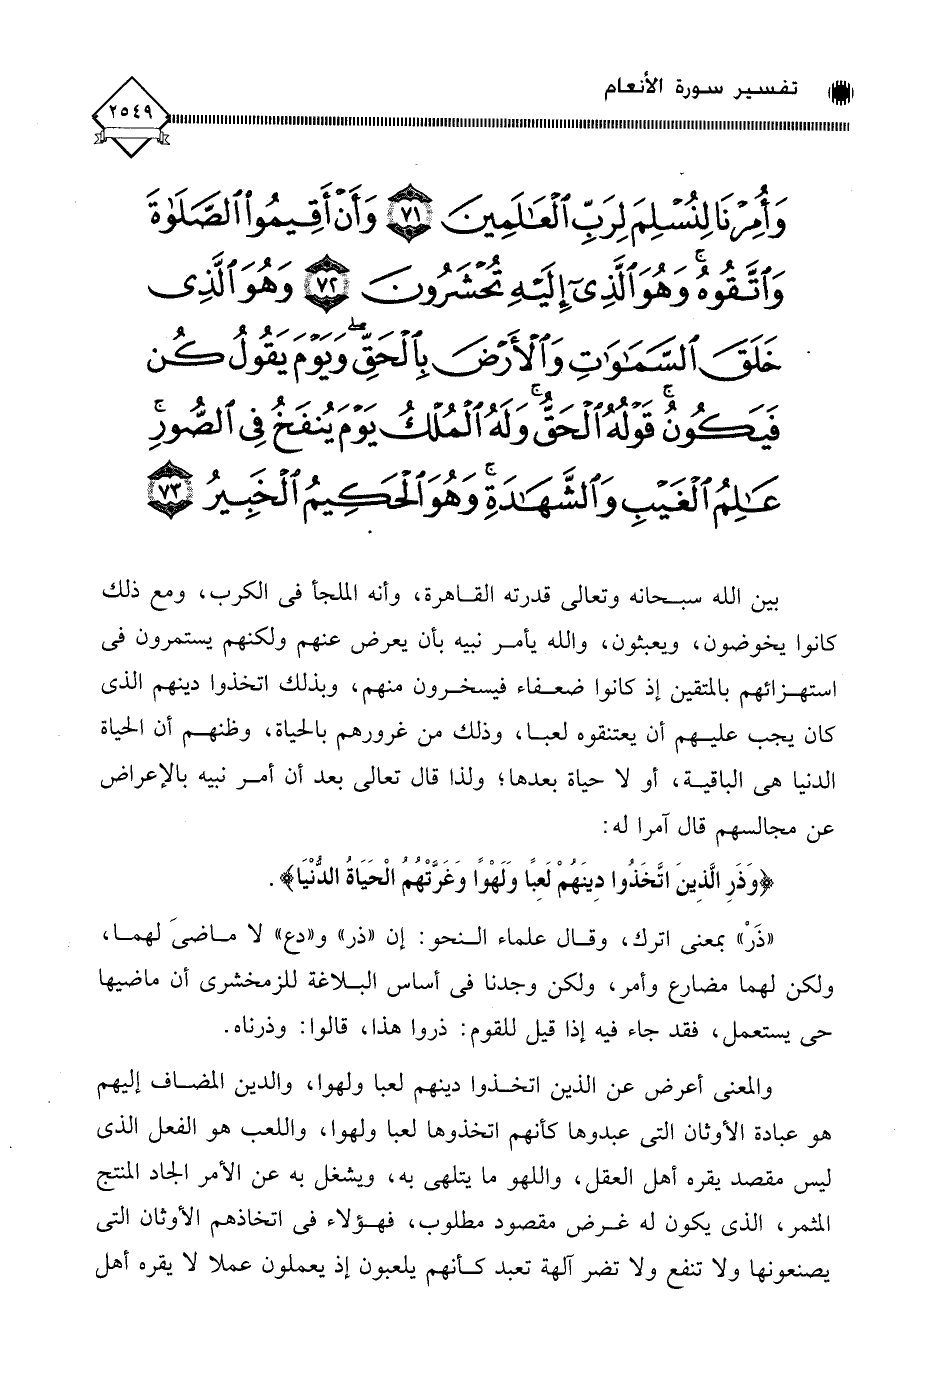 تفسير سورة الأنعام
٢٥٤٩
وَأُمِرْنَا لِنُسْلِمَ لِرَبِّ ٱلْعَٰلَمِينَ ٧١ وَأَنْ أَقِيمُوا۟ ٱلصَّلَوٰةَ
وَٱتَّقُوهُ ۚ وَهُوَ ٱلَّذِىٓ إِلَيْهِ تُحْشَرُونَ ٧٢ وَهُوَ ٱلَّذِى
خَلَقَ ٱلسَّمَٰوَٰتِ وَٱلْأَرْضَ بِٱلْحَقِّ ۖ وَيَوْمَ يَقُولُ كُن
فَيَكُونُ ۚ قَوْلُهُ ٱلْحَقُّ ۚ وَلَهُ ٱلْمُلْكُ يَوْمَ يُنفَخُ فِى ٱلصُّورِ ۚ
عَٰلِمُ ٱلْغَيْبِ وَٱلشَّهَٰدَةِ ۚ وَهُوَ ٱلْحَكِيمُ ٱلْخَبِيرُ ٧٣
بين الله سبحانه وتعالى قدرته القاهرة، وأنه الملجأ فى الكرب، ومع ذلك
كانوا يخوضون، ويعبثون، والله يأمر نبيه بأن يعرض عنهم ولكنهم يستمرون فى
استهزائهم بالمتقين إذ كانوا ضعفاء فيسخرون منهم، وبذلك اتخذوا دينهم الذى
كان يجب عليهم أن يعتنقوه لعبا، وذلك من غرورهم بالحياة، وظنهم أن الحياة
الدنيا هى الباقية، أو لا حياة بعدها؛ ولذا قال تعالى بعد أن أمر نبيه بالإعراض
عن مجالسهم قال آمرا له:
﴿وَذَرِ الَّذِينَ اتَّخَذُوا دِينَهُمْ لَعِبًا وَلَهْوًا وَغَرَّتْهُمُ الْحَيَاةُ الدُّنْيَا﴾.
«ذَرْ» بمعنى اترك، وقال علماء النحو: إن «ذر» و«دع» لا ماضىَ لهما،
ولكن لهما مضارع وأمر، ولكن وجدنا فى أساس البلاغة للزمخشرى أن ماضيها
حى يستعمل، فقد جاء فيه إذا قيل للقوم: ذروا هذا، قالوا: وذرناه.
والمعنى أعرض عن الذين اتخذوا دينهم لعبا ولهوا، والدين المضاف إليهم
هو عبادة الأوثان التى عبدوها كأنهم اتخذوها لعبا ولهوا، واللعب هو الفعل الذى
ليس مقصد يقره أهل العقل، واللهو ما يتلهى به، ويشغل به عن الأمر الجاد المنتج
المثمر، الذى يكون له غرض مقصود مطلوب، فهؤلاء فى اتخاذهم الأوثان التى
يصنعونها ولا تنفع ولا تضر آلهة تعبد كأنهم يلعبون إذ يعملون عملا لا يقره أهل